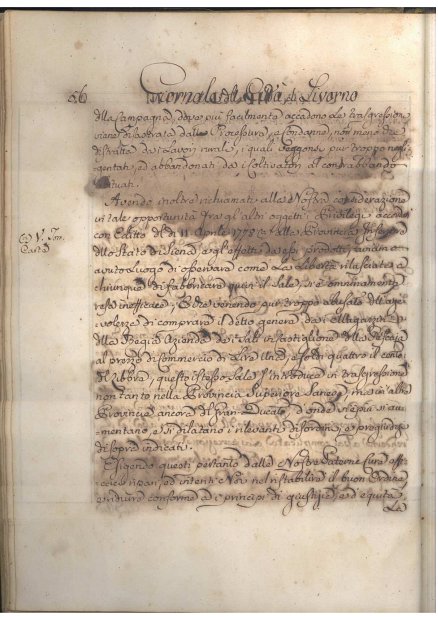 56 Giornale della Città di Livorno
della Campagna, dove più facilmente accadono le trasgressioni
viene dalle Procedure, e Condanne, non meno che
da i Lavori rurali, i quali si veggono pur troppo negli-
gentati, ed abbandonati da i Coltivatori al contrabbando
Avendo inoltre richiamati alla Nostra considerazione
in tale opportunità fra gli altri oggetti i Privilegi accordati
con Editto de dì 11 Aprile 1778 alla Provincia Inferiore
dello Stato di Siena, e gli effetti da essi prodotti, abbiamo
avuto luogo di osservare come la Libertà rilasciata a
chiunque di fabbricare il Sale, si è onninamente
resa inefficace, e che venendo pur troppo abusato dell'age-
volezza di comprare il detto genere da i Magazzini
della Regia Azienda de i Sali in Castiglione della Pescaja
al prezzo di Commercio di Lire e soldi quattro il cento
di libbre, questo istesso Sale s'introduce in trasgressione
non tanto nella Provincia Superiore Sanese, ma in altre
Provincie ancora di Gran-Ducato, d'onde si au-
mentano, e si dilatano i rilevanti disordini, e pregiudizi
di sopra indicati.
Esigendo questi pertanto dalle Nostre Paterne Cure effi-
caci ripari ed intenti Noi nel ristabilire il buon Ordine
e ridurre conforme a i principj di giustizia, ed equità